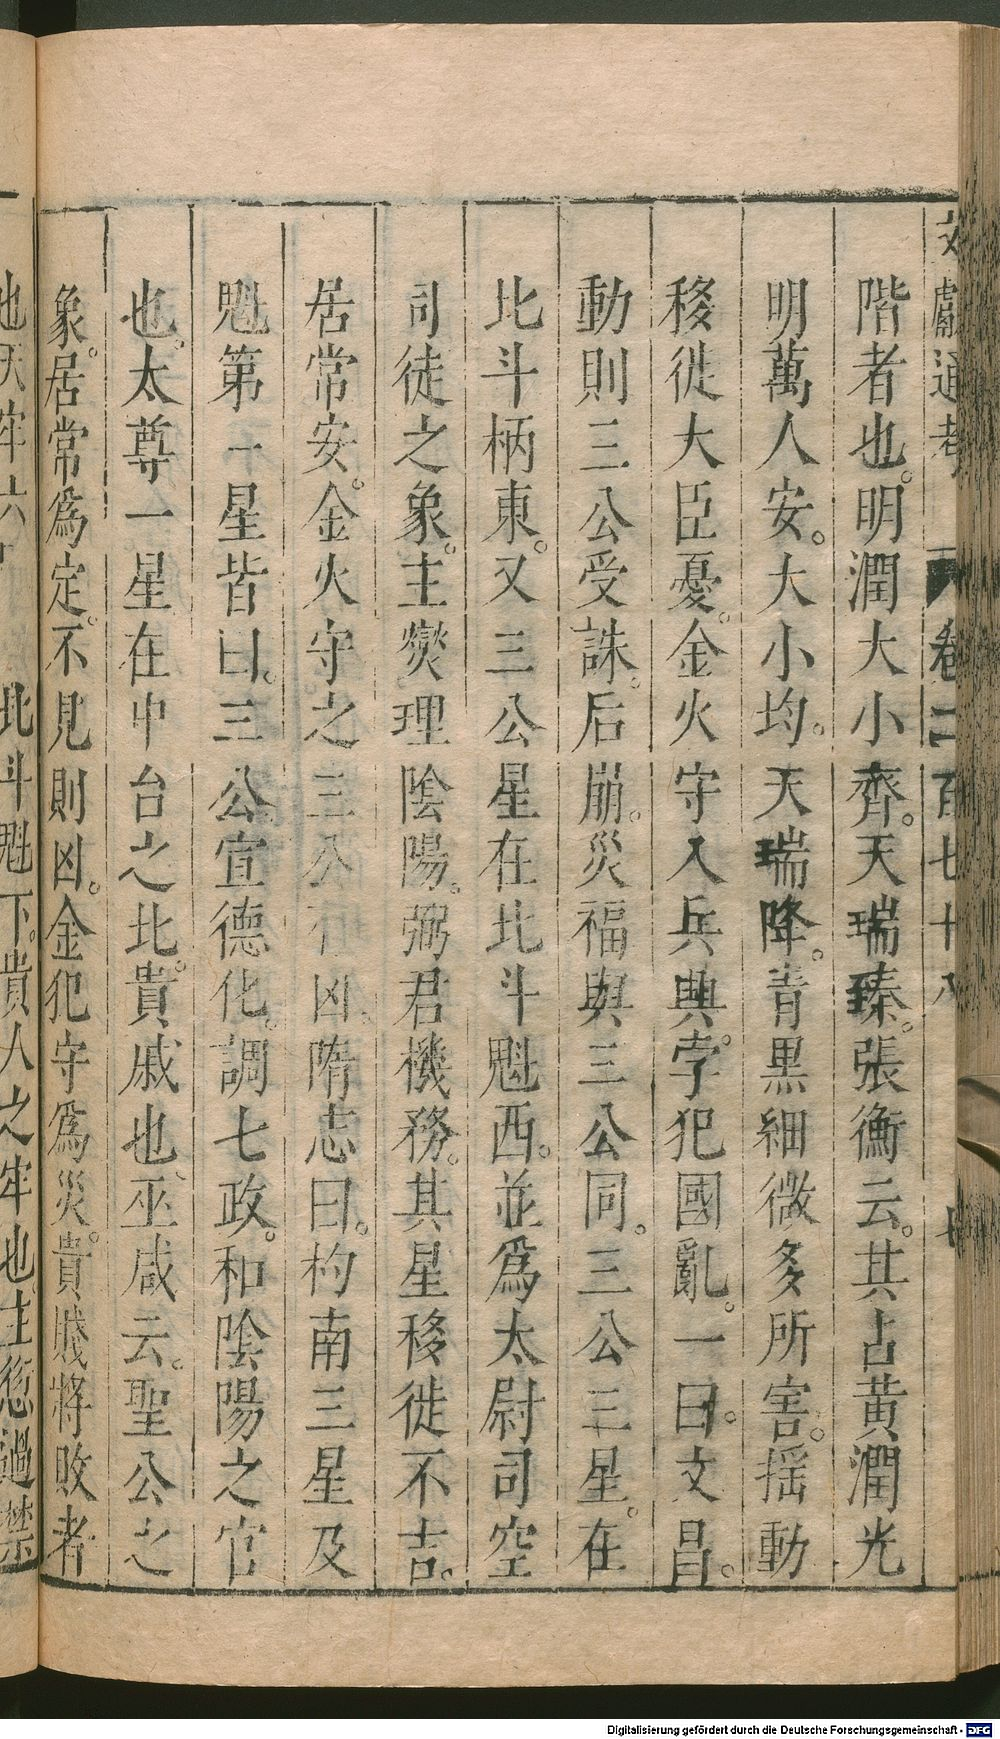 文獻通考 卷二百七十八 七
階者也。明潤大小齊。天瑞臻。張衡云。其占黃潤光
明萬人安。大小均。天瑞降。青黑細微多所害。揺動
移徙大臣憂。金火守入兵興。孛犯國亂。一曰。文昌。
動則三公受誅。后崩。災福與三公同。三公三星。在
北斗柄東。又三公星在北斗魁西。並爲太尉司空
司徒之象。主燮理陰陽。弼君機務。其星移徙不吉。
居常安。金火守之三公有凶。隋志曰。杓南三星及
魁第一星皆曰。三公宣德化。調七政。和陰陽之官
也。太尊一星在中台之北。貴戚也、巫咸云。聖公之
象。居常爲定。不見則凶。金犯守爲災。貴賤將敗者
也天牢六 北斗魁下。貴人之牢也。主愆過禁
Digitalisierung gefördert durch die Deutsche Forschungsgemeinschaft - DFG